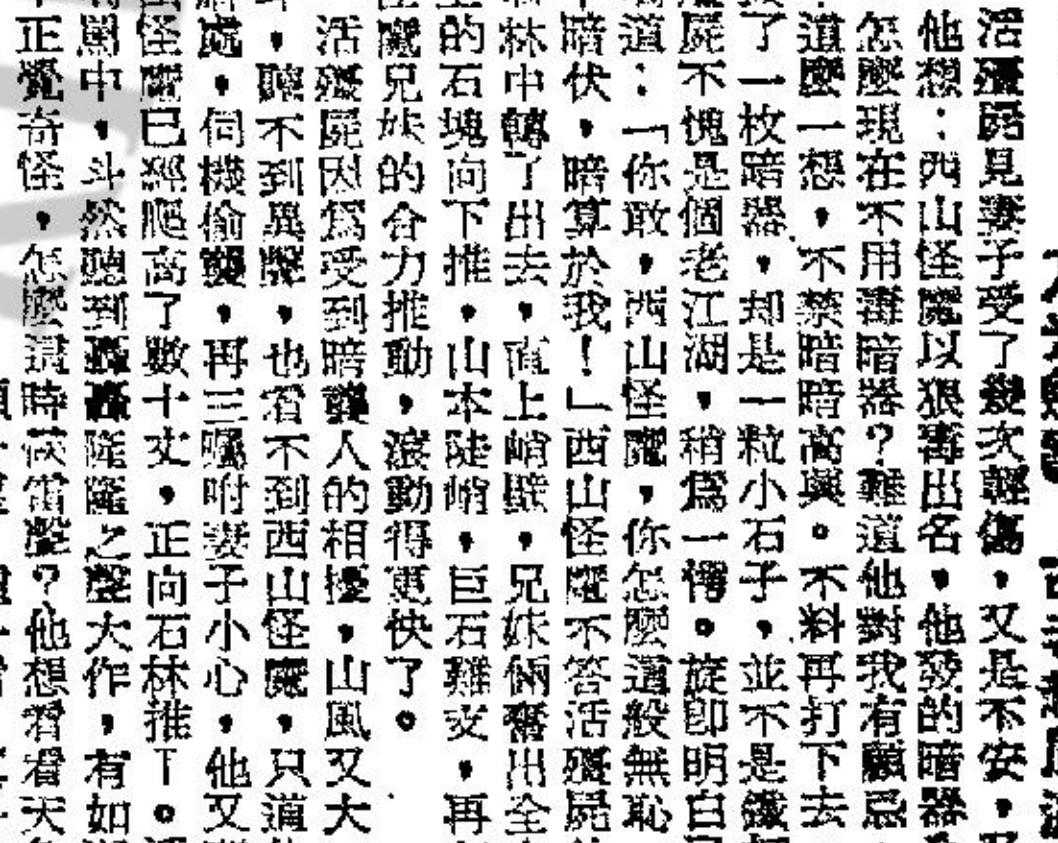 活殭屍見妻子受了幾次輕傷，又是不安，
他想：西山怪魔以狠毒出名，他發的暗器
怎麼現在不用毒暗器？難道他對我有顧忌
道麼一想，不禁暗暗高興。不料再打下去
了一枚暗器，却是一粒小石子，並不是鐵
屍不愧是個老江湖，稍爲一愕。旋即明白
道：「你敢，西山怪魔，你怎麼這般無恥
暗伏，暗算於我！」西山怪魔不答活殭屍
林中轉了出去，直上峭壁，兄妹倆奮出全
的石塊向下推，山本陡峭，巨石雖友，再
魔兄妹的合力推動，滾動得更快了。
活殭屍因爲受到暗襲人的相擾，山風又大
，聽不到異聲，也看不到西山怪魔，只道
處，伺機偷襲，再三囑咐妻子小心，他又
怪魔已經爬高了數十丈，正向石林推下。
罵中，斗然聽到轟轟隆隆之聲大作，有如
正覺奇怪，怎麼這時候雷聲？他想看看天